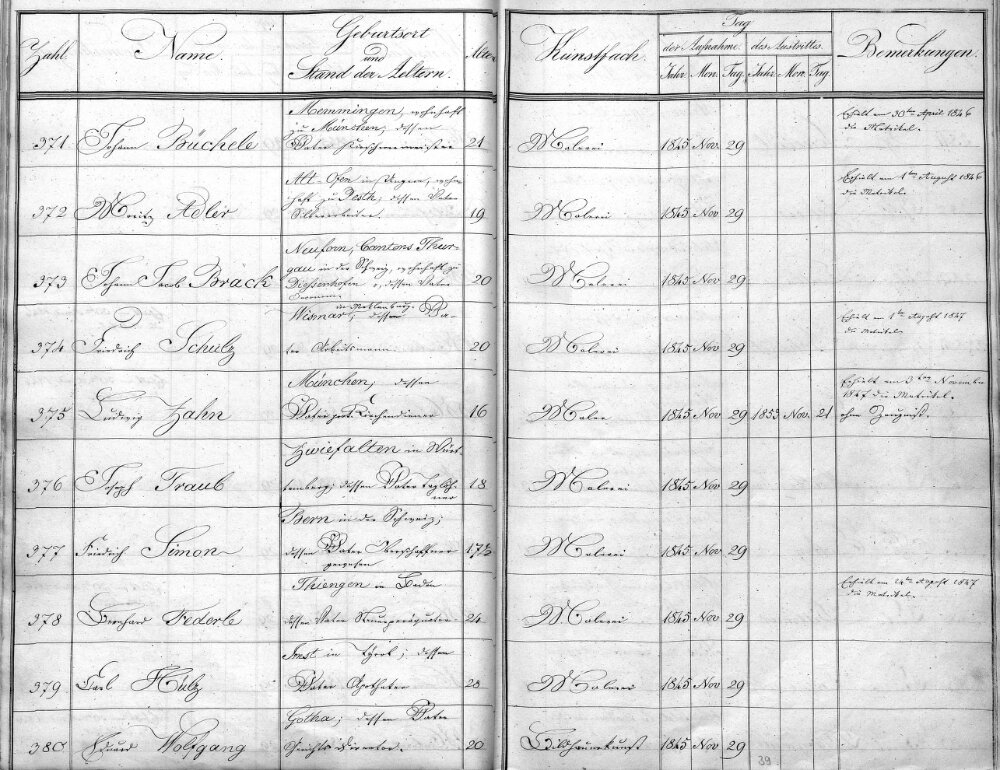 Zahl. Name. Geburtsort und Stand der Aeltern. Alter Kunstfach. Tag der Aufnahme. des Austrittes. Bemerkungen.
Jahr Mon. Tag. Jahr. Mon. Tag.
371 Johann Büchele Memmingen, wohnhaft 21 Malerei 1845 Nov. 29 Erhält am 30ten April 1846
zu München, dessen die Matrikel.
Vater
372 Moritz Adler Alt-Ofen in Ungarn, wohn- 19 Malerei 1845 Nov 29 Erhält am 1ten August 1846
haft zu Pesth; dessen Vater die Matrikel.
373 Johann Jacob Brack Neuforn, Cantons Thur- 20 Malerei 1845 Nov 29
gau in der Schweiz, wohnhaft zu
Dießenhofen dessen Vater
374 Friedrich Schulz Wismar, in Meklenburg. dessen Va- 20 Malerei 1845 Nov 29 Erhält am 1ten August 1847
ter Arbeitsmann. die Matrikel.
375 Ludwig Zahn München, dessen 16 Maler 1845 Nov 29 1853 Nov. 21 Erhält am 3ten November
Vater Kirchendiener 1847 die Matrikel.
ohne Zeugniß.
376 Joseph Traub Zwiefalten in Würt- 18 Malerei 1845 Nov 29
temberg; dessen Vater Taglöh-
ner
377 Friedrich Simon Bern in der Schweiz; 17½ Malerei 1845 Nov 29
dessen Vater Oberschaffner
gewesen
378 Bernhard Federle Thiengen in Baden 24 Malerei 1845 Nov 29 Erhält am 24ten August 1847
dessen Vater Steuerperäquator die Matrikel.
379 Carl Hülz Imst in Tyrol; dessen 28 Malerei 1845 Nov 29
Vater Apotheker
380 Eduard Wolfgang Gotha; dessen Vater 20 Bildhauerkunst 1845 Nov 29
39